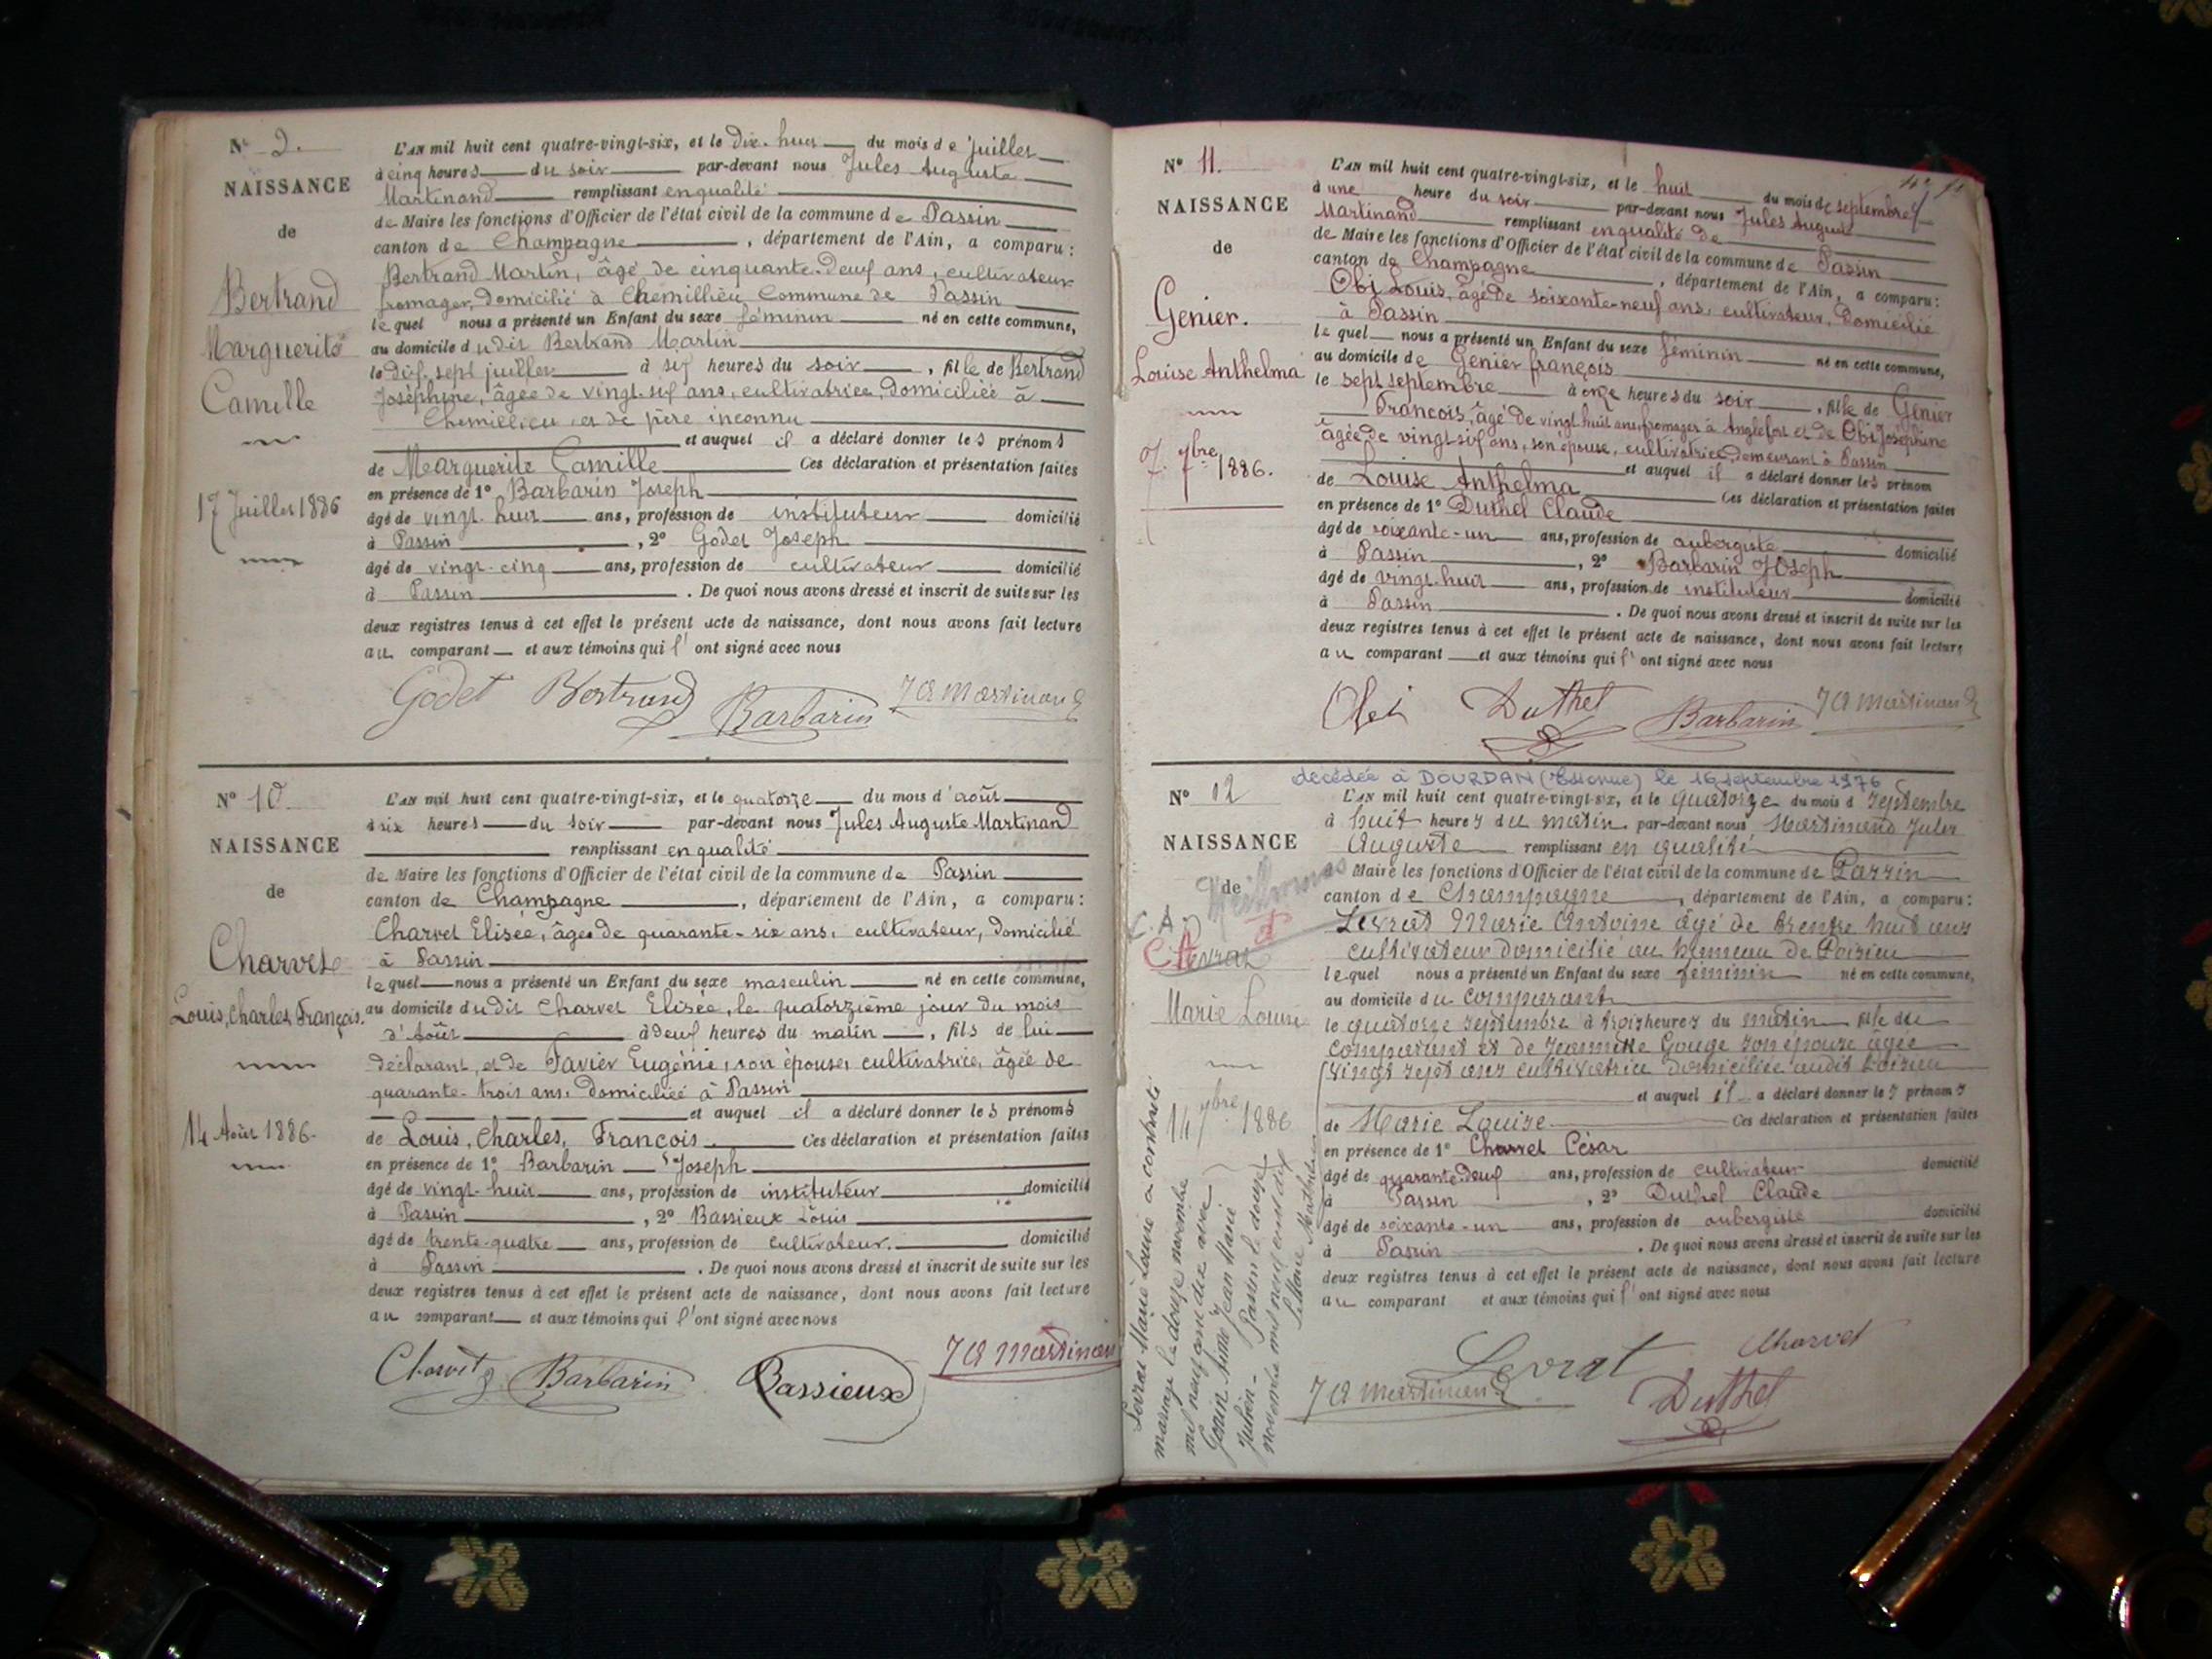 N° 9.
NAISSANCE
de
Bertrand
Marguerite
Camille
17 Juillet 1886
L'AN mil huit cent quatre-vingt-six, et le dix-huit du mois de juillet
à cinq heures du soir par-devant nous Jules Auguste
Martinand remplissant en qualité
de Maire les fonctions d'Officier de l'état civil de la commune de Passin
canton de Champagne, département de l'Ain, a comparu:
Bertrand Martin, âgé de cinquante-deux ans, cultivateur
fromager, domicilié à Chemillieu Commune de Passin
lequel nous a présenté un Enfant du sexe féminin né en cette commune,
au domicile dudit Bertrand Martin
le dix-sept juillet à six heures du soir, fille de Bertrand
Joséphine, âgée de vingt-six ans, cultivatrice, domiciliée à
Chemillieu et de père inconnu
et auquel il a déclaré donner les prénoms
de Marguerite Camille Ces déclaration et présentation faites
en présence de 1° Barbarin Joseph
âgé de vingt-huit ans, profession de instituteur domicilié
à Passin, 2° Godet Joseph
âgé de vingt-cinq ans, profession de cultivateur domicilié
à Passin. De quoi nous avons dressé et inscrit de suite sur les
deux registres tenus à cet effet le présent acte de naissance, dont nous avons fait lecture
au comparant et aux témoins qui l'ont signé avec nous
Godet Bertrand Barbarin JA Martinand
N° 10
NAISSANCE
de
Charvet
Louis, Charles, François.
14 Août 1886.
L'AN mil huit cent quatre-vingt-six, et le quatorze du mois d'août
à six heures du soir par-devant nous Jules Auguste Martinand
remplissant en qualité
de Maire les fonctions d'Officier de l'état civil de la commune de Passin
canton de Champagne, département de l'Ain, a comparu:
Charvet Elisée, âgé de quarante-six ans, cultivateur, domicilié
à Passin
lequel nous a présenté un Enfant du sexe masculin né en cette commune,
au domicile dudit Charvet Elisée, le quatorzième jour du mois
d'Août à deux heures du matin, fils de lui
déclarant, et de Favier Eugénie, son épouse, cultivatrice, âgée de
quarante-trois ans, domiciliée à Passin
et auquel il a déclaré donner les prénoms
de Louis, Charles, François Ces déclaration et présentation faites
en présence de 1° Barbarin Joseph
âgé de vingt-huit ans, profession de instituteur domicilié
à Passin, 2° Bassieux Louis
âgé de trente-quatre ans, profession de cultivateur. domicilié
à Passin. De quoi nous avons dressé et inscrit de suite sur les
deux registres tenus à cet effet le présent acte de naissance, dont nous avons fait lecture
au comparant et aux témoins qui l'ont signé avec nous
Charvet Barbarin Bassieux JA Martinand
N° 11.
NAISSANCE
de
Genier.
Louise Anthelma
7. 7bre 1886.
L'AN mil huit cent quatre-vingt-six, et le huit du mois de septembre
à une heure du soir par-devant nous Jules Auguste
Martinand remplissant en qualité de
de Maire les fonctions d'Officier de l'état civil de la commune de Passin
canton de Champagne, département de l'Ain, a comparu:
Obi Louis, âgé de soixante-neuf ans, cultivateur, domicilié
à Passin
lequel nous a présenté un Enfant du sexe féminin né en cette commune,
au domicile de Genier françois
le sept septembre à onze heures du soir, fille de Genier
François, âgé de vingt huit ans, fromager à Anglefort et de Obi Joséphine
âgée de vingt-six ans, son épouse, cultivatrice, demeurant à Passin
et auquel il a déclaré donner les prénom
de Louise Anthelma Ces déclaration et présentation faites
en présence de 1° Duthel Claude
âgé de soixante-un ans, profession de aubergiste domicilié
à Passin, 2° Barbarin Joseph
âgé de vingt-huit ans, profession de instituteur domicilié
à Passin. De quoi nous avons dressé et inscrit de suite sur les
deux registres tenus à cet effet le présent acte de naissance, dont nous avons fait lecture
au comparant et aux témoins qui l'ont signé avec nous
Obi Duthel Barbarin JA Martinand
décédée à DOURDAN (Essonne) le 16 septembre 1976
N° 12
NAISSANCE
de
Levrat
Marie Louise
14 7bre 1886
L'AN mil huit cent quatre-vingt-six, et le quatorze du mois d septembre
à huit heures du matin par-devant nous Martinand Jules
Auguste remplissant en qualité
Maire les fonctions d'Officier de l'état civil de la commune de Passin
canton de Champagne, département de l'Ain, a comparu:
Levrat Marie Antoine âgé de trente huit ans
cultivateur domicilié au hameau de Poisieu
lequel nous a présenté un Enfant du sexe féminin né en cette commune,
au domicile du comparant
le quatorze septembre à trois heures du matin fille du
comparant et de Jeannette Gouge son épouse âgée
vingt sept ans cultivatrice domiciliée audit Poisieu
et auquel il a déclaré donner les prénoms
de Marie Louise Ces déclaration et présentation faites
en présence de 1° Charvet César
âgé de quarante-deux ans, profession de cultivateur domicilié
à Passin, 2° Duthel Claude
âgé de soixante-un ans, profession de aubergiste domicilié
à Passin. De quoi nous avons dressé et inscrit de suite sur les
deux registres tenus à cet effet le présent acte de naissance, dont nous avons fait lecture
au comparant et aux témoins qui l'ont signé avec nous
Levrat Charvet
JA Martinand Duthel
Levrat Marie Louise a contracté
mariage le douze novembre
mil neuf cent dix avec
Gonin Aimé Jean Marie
Julien - Passin le douze
novembre mil neuf cent dix